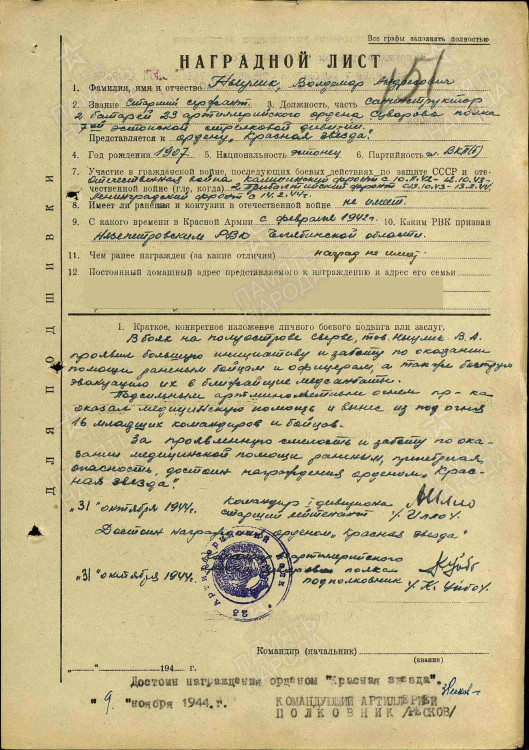 Все графы заполнять полностью
151
НАГРАДНОЙ ЛИСТ
1. Фамилия, имя и отчество Ныулик, Вольдемар Андреевич
2. Звание Старший сержант. 3. Должность, часть Санинструктор
2 батареи 23 артиллерийского ордена Суворова полка
7ой эстонской стрелковой дивизии.
Представляется к ордену "Красная Звезда".
4. Год рождения 1907. 5. Национальность эстонец 6. Партийность ВКП(б)
7. Участие в гражданской войне, последующих боевых действиях по защите СССР и оте-
чественной войне (где, когда) Отечественная война Калининский фронт с 10.11.42
2 Прибалтийский фронт
Ленинградский фронт с 14.2.44г.
8. Имеет ли ранения и контузии в отечественной войне не имеет.
9. С какого времени в Красной Армии с февраля 1942г. 10. Каким РВК призван
Нязепетровским РВК Челябинской области.
11. Чем ранее награжден (за какие отличия) наград не имеет
12. Постоянный домашний адрес представляемого к награждению и адрес его семьи
ДЛЯ ПОДШИВКИ
I. Краткое, конкретное изложение личного боевого подвига или заслуг.
В боях на полуострове Сырве, тов. Ныулик В.А.
проявил большую инициативу и заботу по оказании
помощи раненым бойцам и офицерам, а также быструю
эвакуацию их в ближайшие медсанбаты.
Под сильным артминометным огнем пр-ка
оказал медицинскую помощь и вынес из под огня
16 младших командиров и бойцов.
За проявленную смелость и заботу по ока-
зании медицинской помощи раненым, пренебрегая
опасность, достоин награждения орденом "Крас-
ная звезда".
"31" октября 1944г. Командир 1 дивизиона
старший лейтенант /Илло/.
Достоин награждения орденом "Красная звезда"
артиллерийского
Суворова полка
"31" октября 1944г. подполковник /К. Уйбо/.
23 Артиллерийский полк
Командир (начальник)
(звание)
" " 194 г.
Достоин награждения орденом "Красная звезда".
" 9. " ноября 1944.г. КОМАНДУЮЩИЙ АРТИЛЛЕРИЕЙ
ПОЛКОВНИК /РЕСКОВ/
ПАМЯТЬ НАРОДА